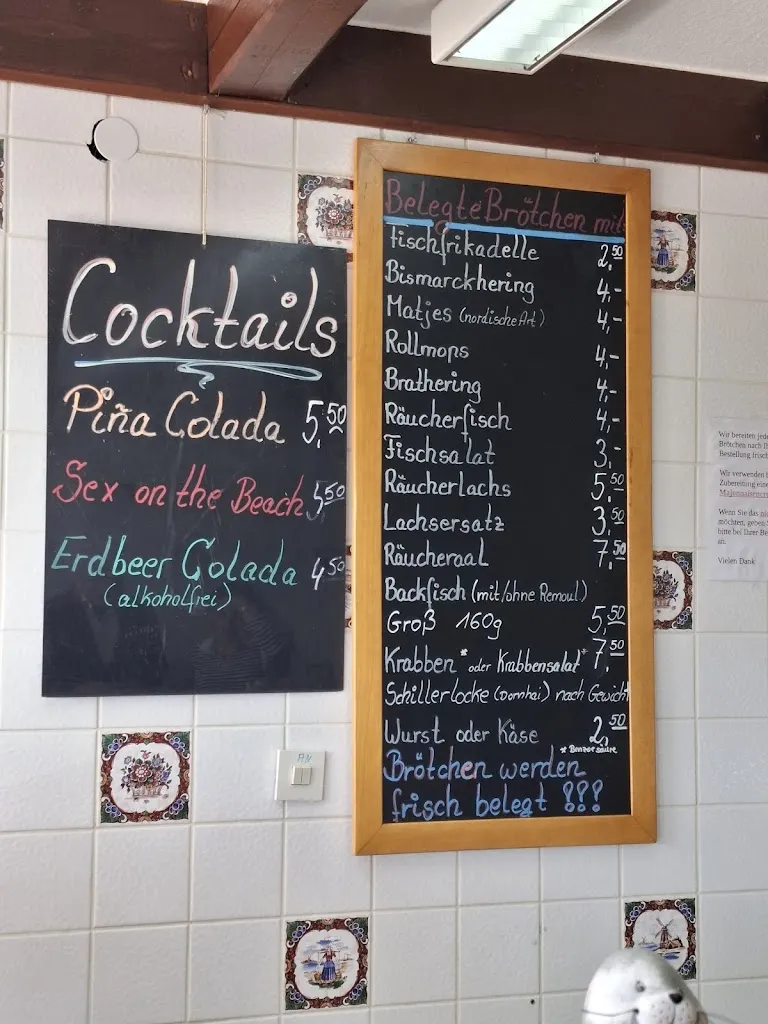 Cocktails
Piña Colada 5,50
Sex on the Beach 5,50
Erdbeer Colada 4,50
(alkoholfrei)
Belegte Brötchen mit
Fischfrikadelle 2,50
Bismarckhering 4,-
Matjes (nordische Art) 4,-
Rollmops 4,-
Brathering 4,-
Räucherfisch 4,-
Fischsalat 3,-
Räucherlachs 5,50
Lachsersatz 3,50
Räucheraal 7,50
Backfisch (mit/ohne Remoul.)
Groß 160g 5,50
Krabben* oder Krabbensalat* 7,50
Schillerlocke (Dornhai) nach Gewicht
Wurst oder Käse 2,50
* Benzoesäure
Brötchen werden
frisch belegt !!!
Wir bereiten
Brötchen nach
Bestellung frisch
Wir verwenden
Zubereitung eine
Wenn Sie das
möchten, geben
bitte bei Ihrer
an.
Vielen Dank